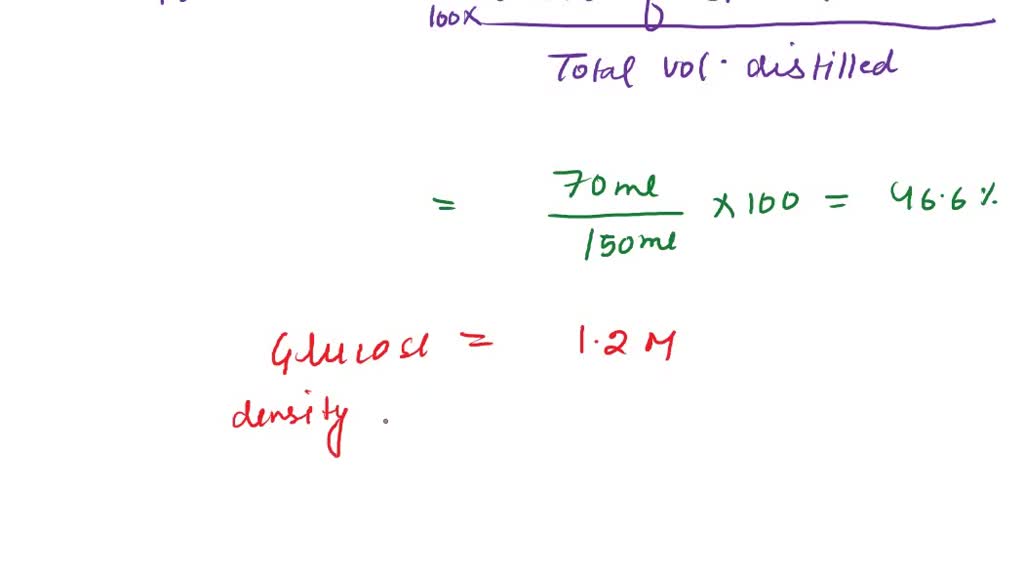 100x
Total vol. distilled
= 70 ml / 150 ml x 100 = 46.6 %
Glucose = 1.2 M
density .